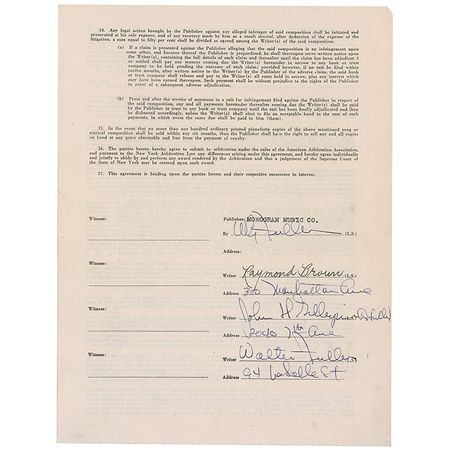 14. Any legal action brought by the Publisher against any alleged infringer of said composition shall be initiated and
prosecuted at his sole expense, and of any recovery made by him as a result thereof, after deduction of the expense of the
litigation, a sum equal to fifty per cent shall be divided as agreed among the Writer(s) of the said composition.
(a) If a claim is presented against the Publisher alleging that the said composition is an infringement upon
some other, and because thereof the Publisher is jeopardized, he shall thereupon serve written notice upon
the Writer(s), containing the full details of such claim and thereafter until the claim has been adjudicated or
settled shall pay any moneys coming due the Writer(s) hereunder in escrow in any bank or trust
company to be held pending the outcome of such claim; provided however, if no suit be filed within
twelve months, after written notice to the Writer(s) by the Publisher of the adverse claim, the said bank
or trust company shall release and pay to the Writer(s) all sums held in escrow, plus any interest which
may have been earned thereupon. Such payment shall be without prejudice to the rights of the Publisher
in event of a subsequent adverse adjudication.
(b) From and after the service of summons in a suit for infringement filed against the Publisher in respect of
the said composition, any and all payments hereunder thereafter coming due the Writer(s) shall be paid
by the Publisher in trust to any bank or trust company until the suit has been finally adjudicated and then
be disbursed accordingly, unless the Writer(s) shall elect to file an acceptable bond in the sum of such
payments, in which event the sums due shall be paid to him (them)
15. In the event that no more than one hundred ordinary printed pianoforte copies of the above mentioned song or
musical composition shall be sold within any six months, then the Publisher shall have the right to sell any and all copies
on hand at any price obtainable and free from the payment of royalty.
16. The parties hereto hereby agree to submit to arbitration under the rules of the American Arbitration Association,
and pursuant to the New York Arbitration Law any differences arising under this agreement, and hereby agree individually
and jointly to abide by and perform any award rendered by the Arbitration and that a judgment of the Supreme Court of
the State of New York may be entered upon such award.
17. This agreement is binding upon the parties hereto and their respective successors in interest.
Witness: Publisher MONOGRAM MUSIC CO.
By W Fuller (L.S.)
Address:
Witness: Writer Raymond Brown (L.S.)
Address 370 Manhattan Ave
Witness: Writer John H Gillespie
Address 2040 7th Ave
Witness: Writer Walter Fuller
Address 94 LaSalle St